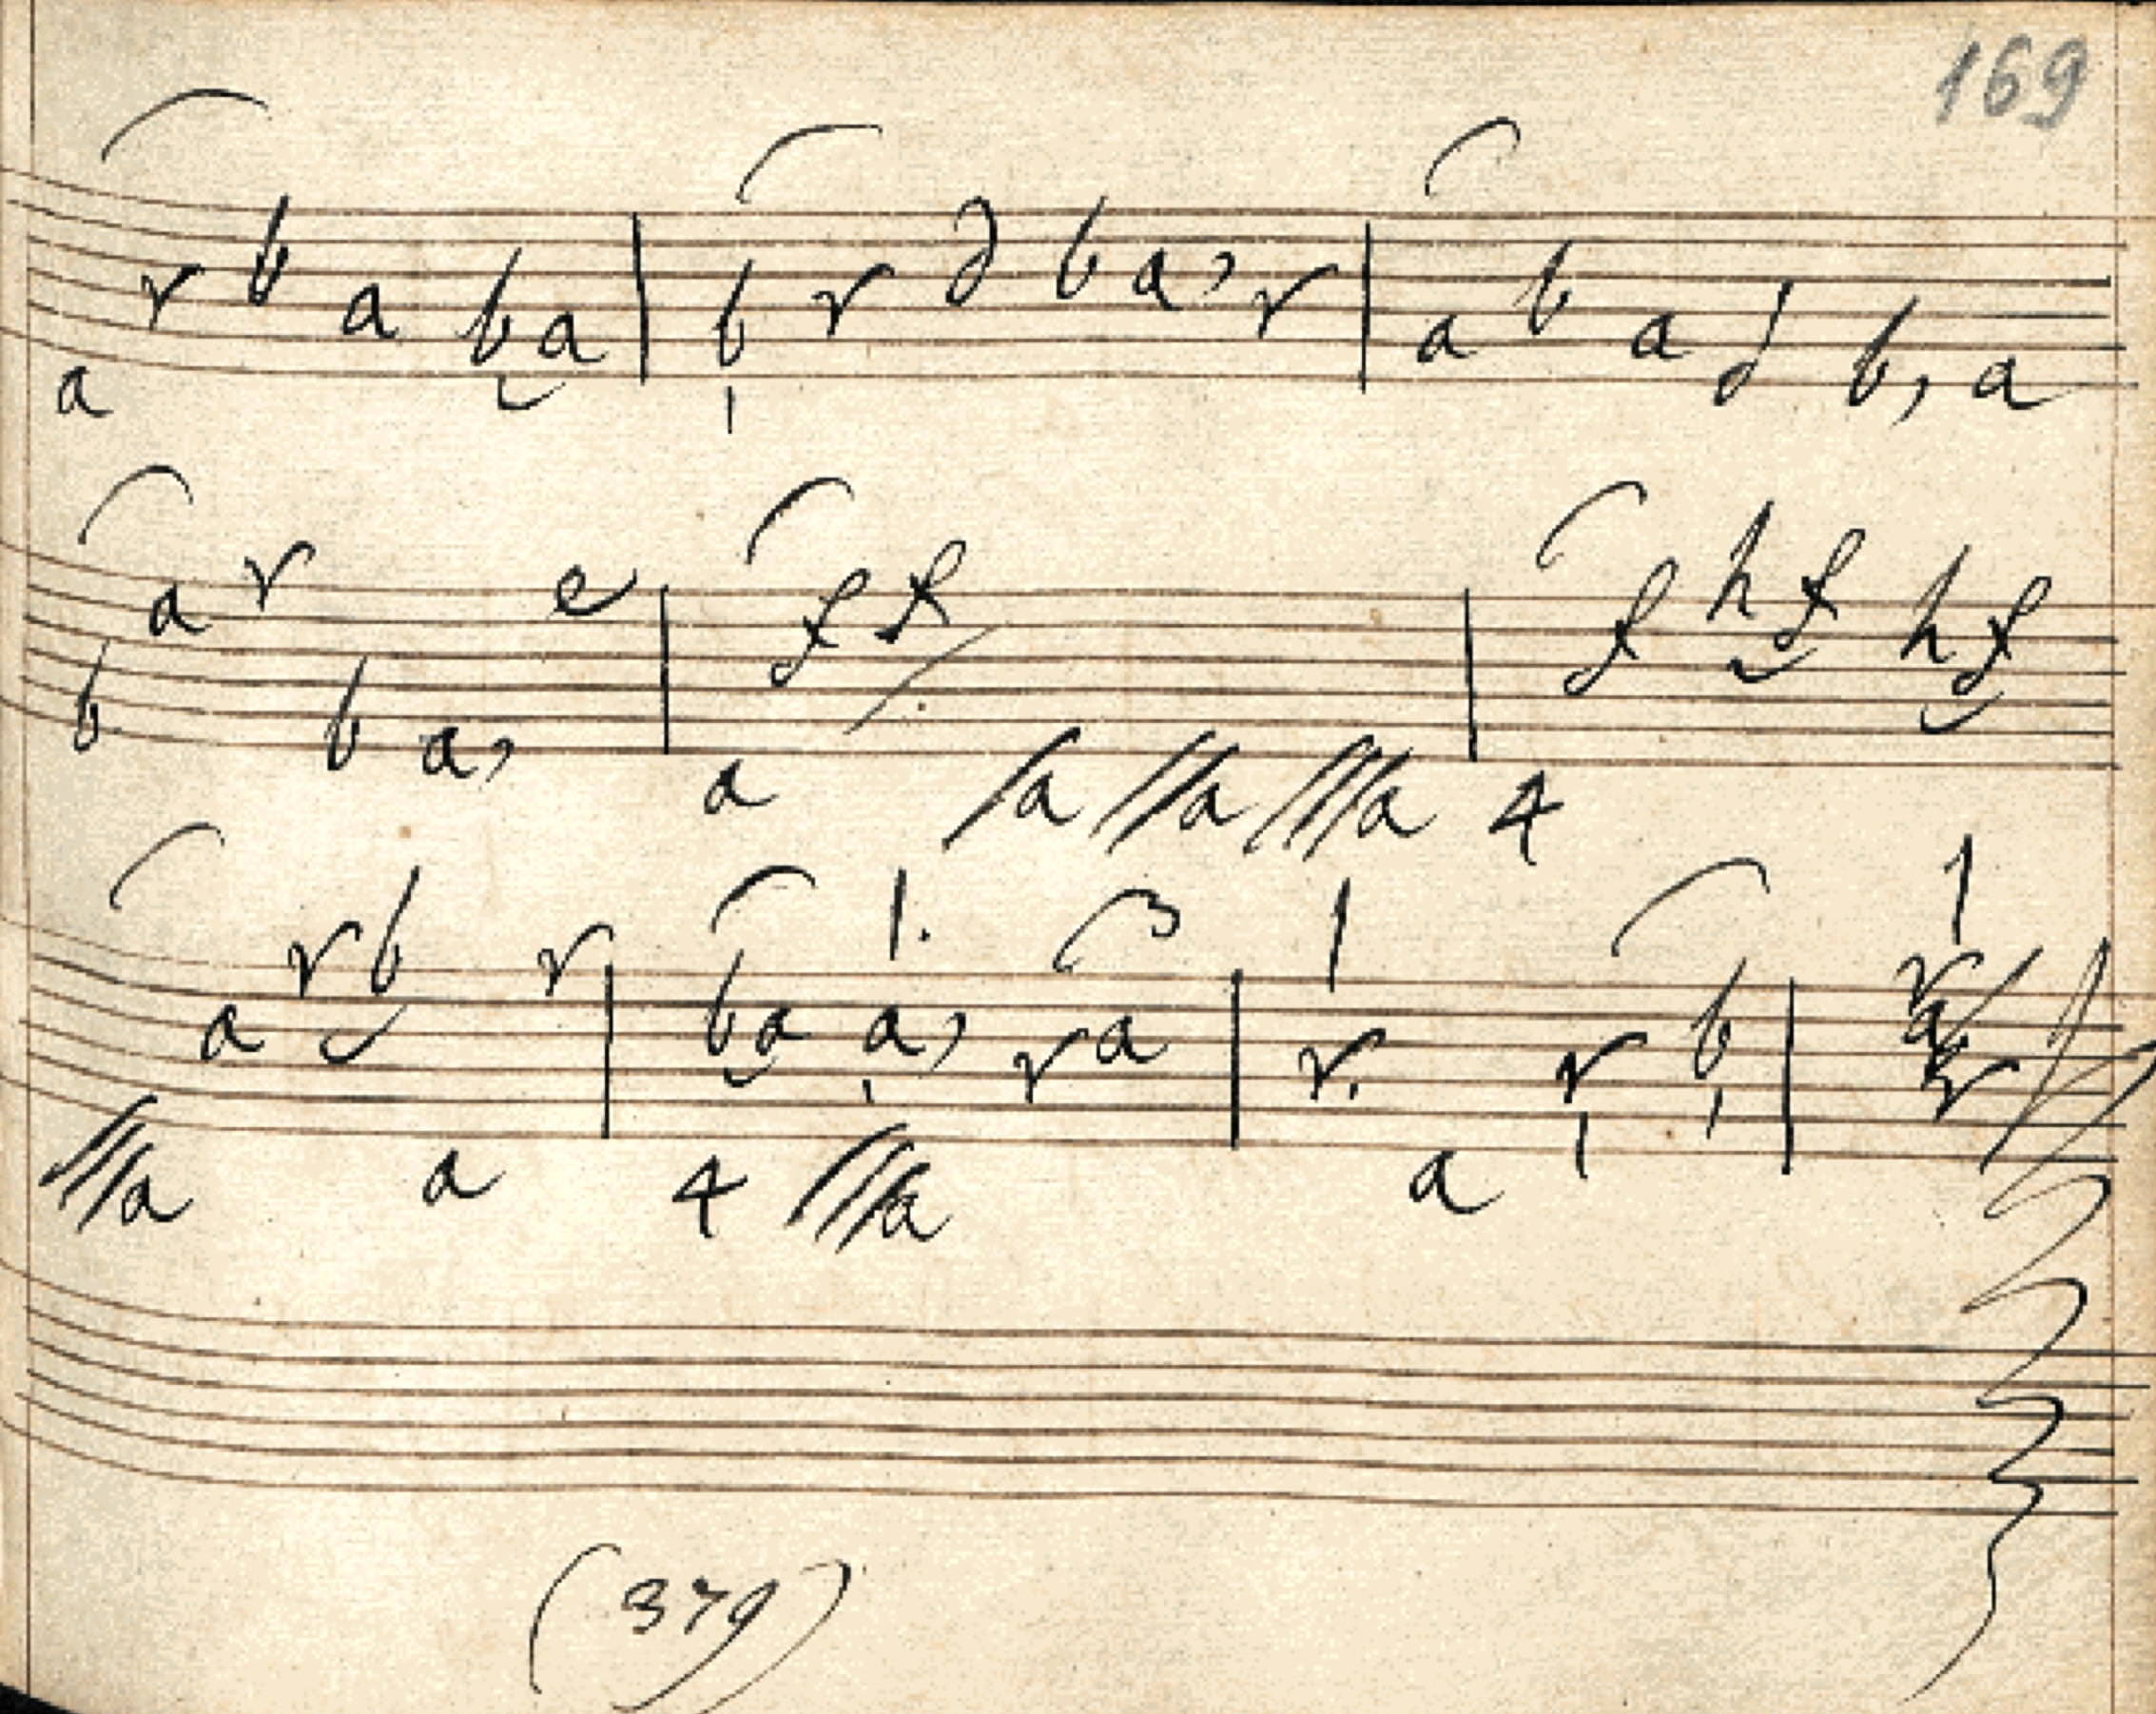 169
a r b a b a b r d b a, r a b a d b, a
b a r b a, e a f f /a //a ///a 4 f h f h f
///a a r b a r 4 b a ///a a, r a r. a r b r a r
(379)